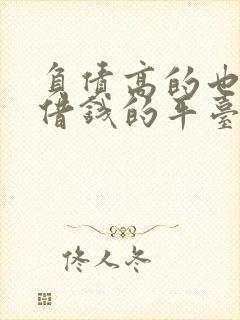 負債高的也
借錢的平臺
佟人冬